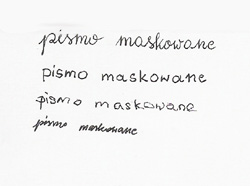 pismo maskowane
pismo maskowane
pismo maskowane
pismo maskowane